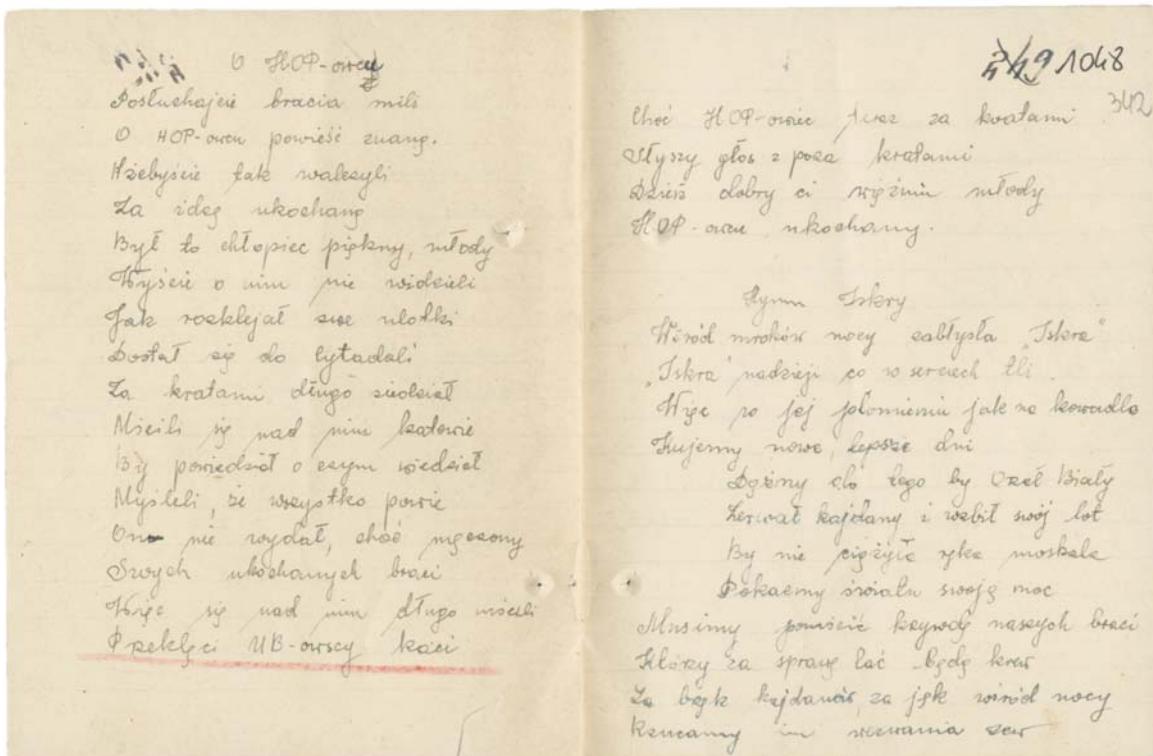 O HOP-owcu
Posłuchajcie bracia mili
O HOP-owcu powieść znaną.
Ażebyście tak walczyli
Za ideę ukochaną
Był to chłopiec piękny, młody
Wyście o nim nie widzieli
Jak rozklejał swe ulotki
Dostał się do cytadali
Za kratami długo siedział
Mścili się nad nim katowie
By powiedział o czym wiedział
Myśleli, że wszystko powie
On nie wydał, choć męczony
Swych ukochanych braci
Więc się nad nim długo mścili
Przeklęci UB-owscy kaci
1048
342
Choć HOP-owiec teraz za kratami
Słyszy głos z poza kratami
Dzień dobry ci więźniu młody
HOP-owcu ukochany.
Hymn Iskry
Wśród mroków nocy zabłysła "Iskra"
"Iskra" nadzieji co w sercach tli
Więc w jej płomieniu jak na kowadle
Kujemy nowe, lepsze dni
Dążmy do tego by Orzeł Biały
Zerwał kajdany i wzbił swój lot
By nie ciężyła ręka moskala
Pokażmy światu swoją moc
Musimy pomścić krzywdę naszych braci
Którzy za sprawę lać będą krew
Za brzęk kajdanów, za jęk wśród nocy
Rzucamy im wezwania zew